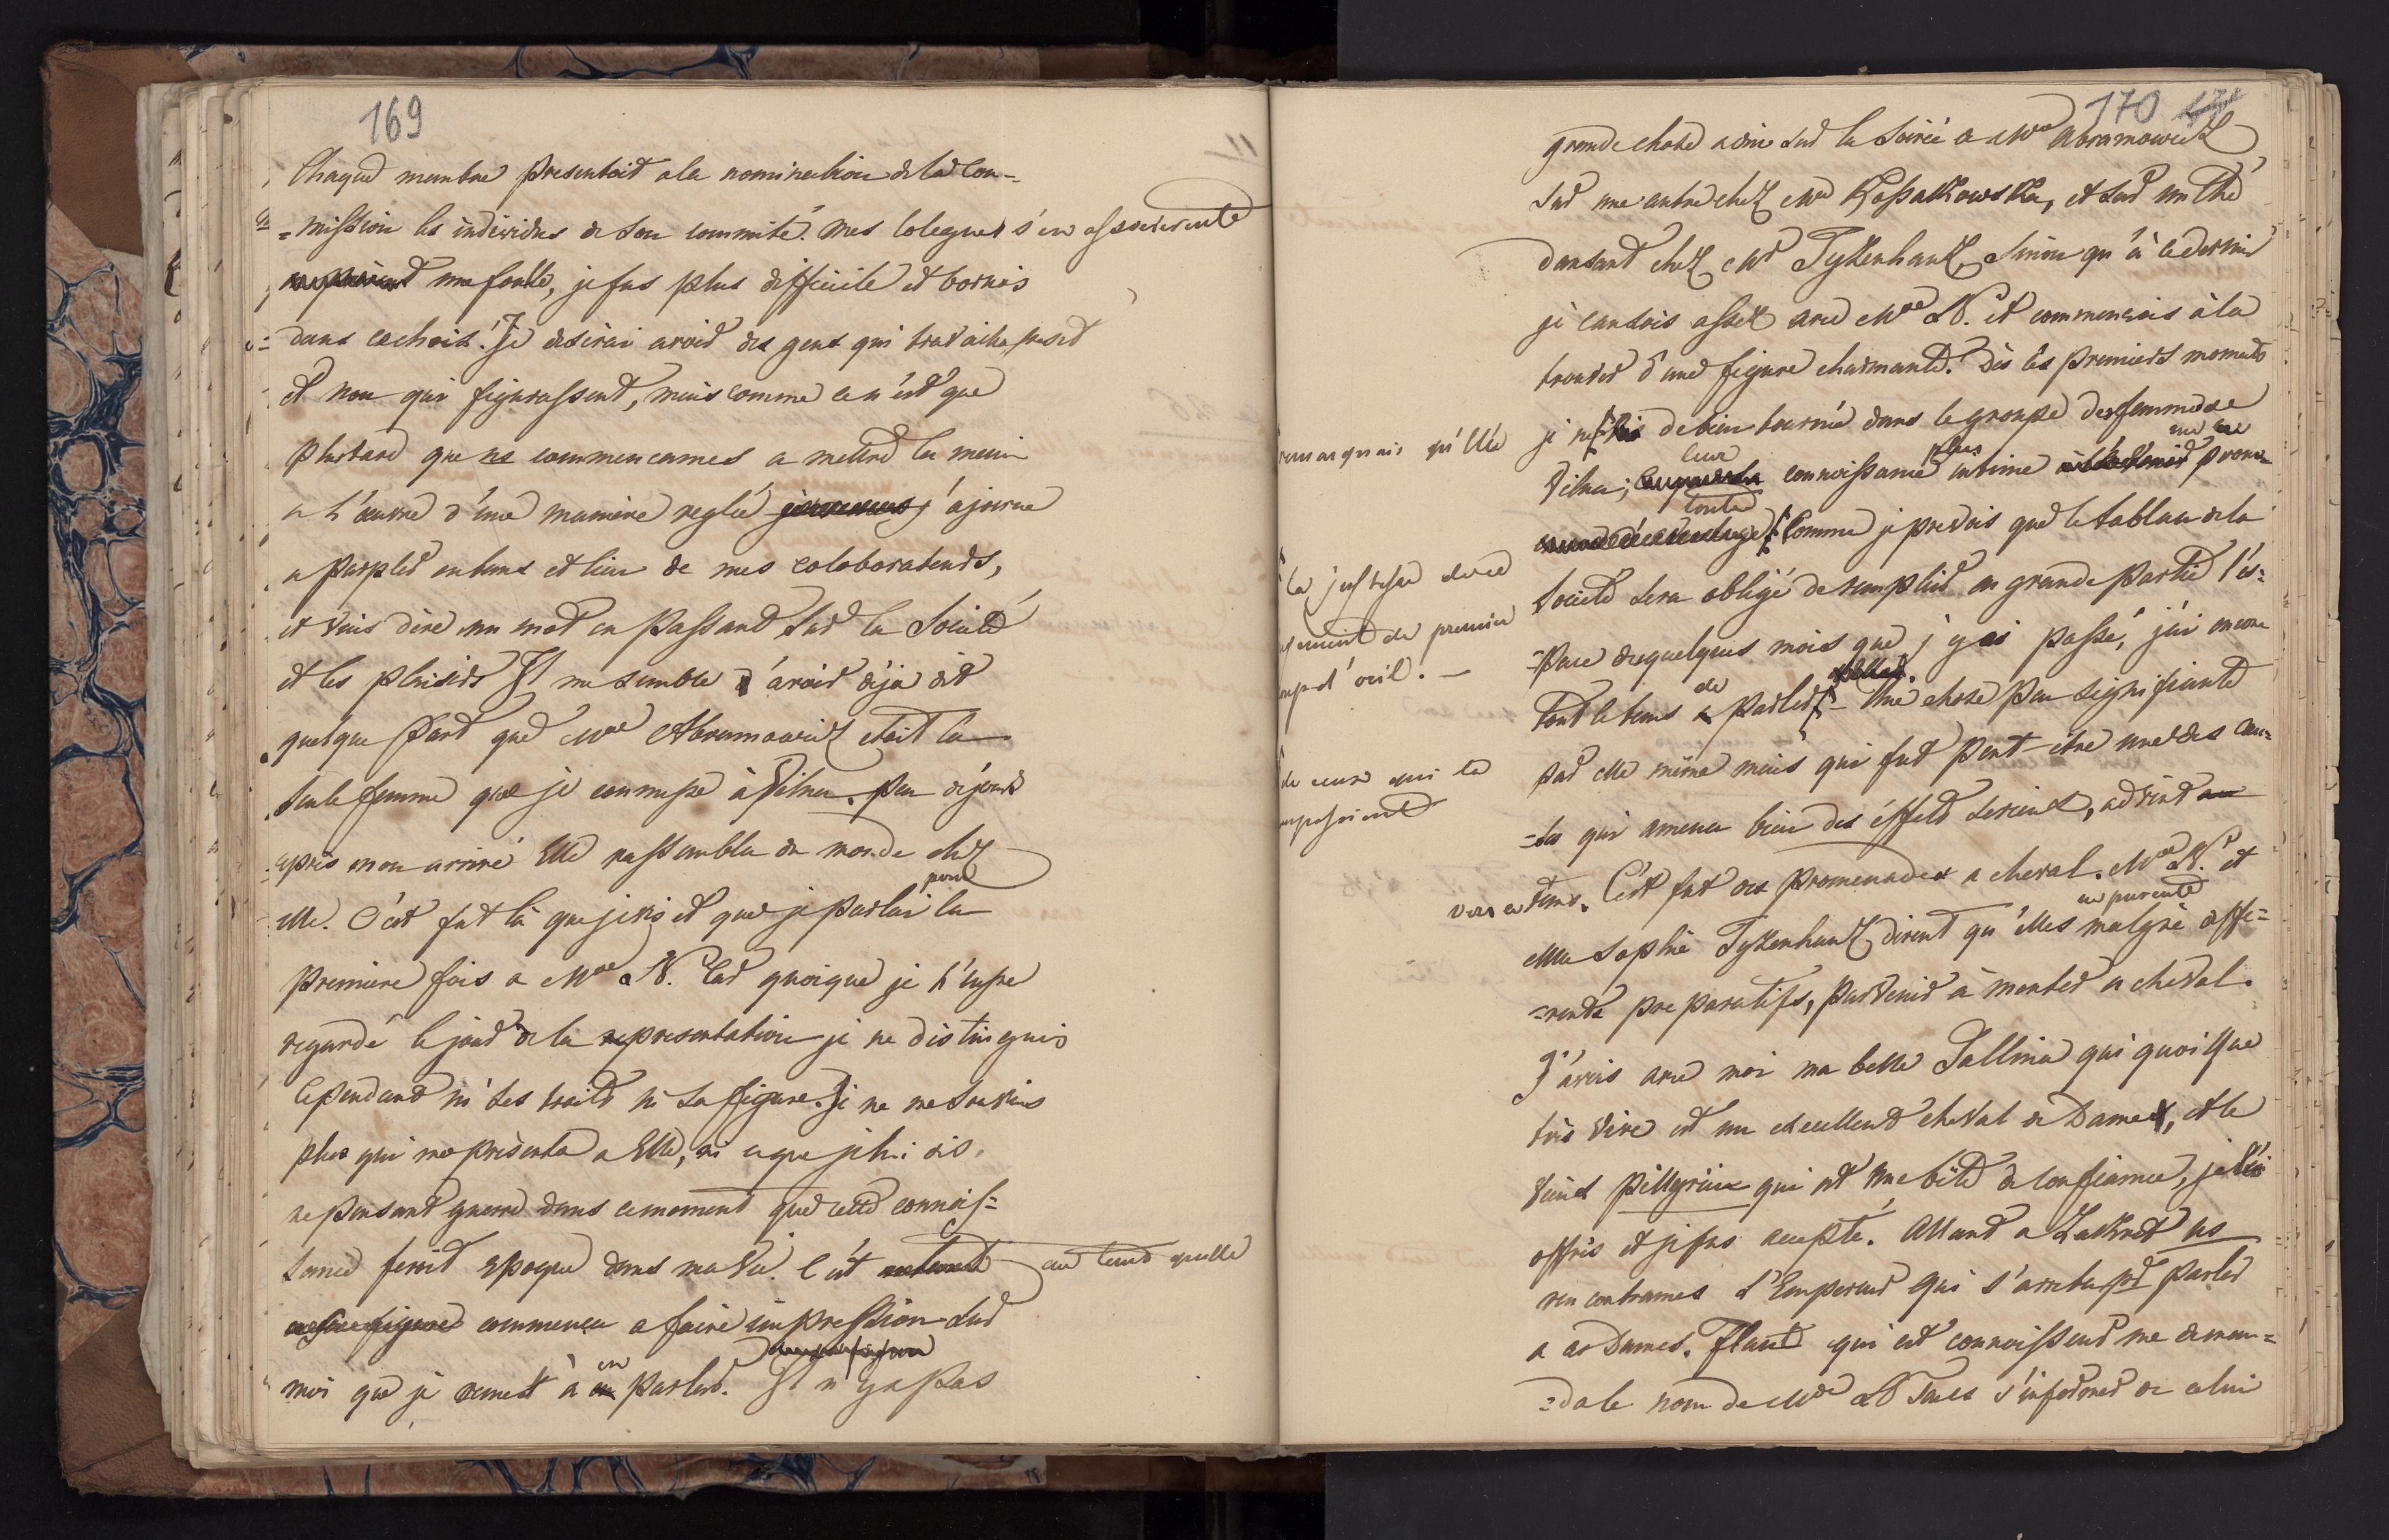 169
Chaque membre presentait a la nomination de la Com-
=mission les individus de son committé. Mes colegues s'en associerent
une foulle, je fus plus difficile et bornis
dans ce choix. Je desirai avoir des gens qui travaillassent
et non qui figurassent, mais comme ce n'est que
plustard que ns commencames a mettre la main
a l'œuvre d'une maniere reglée j'ajourne
a parler en tems et lieu de mes colaborateurs,
et vais dire un mot en passant sur la Societé
et les plaisirs Il me semble d'avoir déja dit
quelque part que Mme Abramowicz etait la
seule femme que je connusse à Vilna. Peu de jours
apris mon arrivé Elle rassembla du monde chez
elle. C'et fut là que je vis et que je parlai pour la
premiere fois a Mme N. Car quoique je l'eusse
regardé le jour de la representation je ne distinguis
cependant ni ses traits ni sa figure. Je ne me souviens
plus qui me présenta a Elle, ni ce que je lui dis.
ne pensant guerre dans ce moment que cette connois=
sance feroit epoque dans ma vie. C'est au tems quelle
commença a faire impression sur
moi que je remet à en parler. Il n'y a pas
170
grande chose a dire sur la soirée a Mme Abramowicz
sur une autre chez Mme Kossakowska, et sur un thé
dansant chez Mr Tyzenhauz, sinon qu'à ce dernier
je causois assez avec Mme N. et commençais à la
trouver d'une figure charmante. Dès les premiers moments
je remarquais qu'Elle de bien tournée dans le groupe des femmes de
Vilna; leur connoissance plus intime me prouva
toute la justesse de ce
jugement de premier
coup d'œil. —
de ceux qui la
composoient
Comme je prevois que le tableau de la
societé sera obligé de remplir en grande partie l'es=
=pace de quelques mois que j'y ai passé, j'ai encore
tout le tems de parler. — Une chose peu signifiante
par elle même mais qui fut peut-être une des cau=
=ses qui amena bien des éffets serieux, advint
vers ce tems. C'est fut des promenades a cheval. Mme N. et
Mlle Sophie Tyzenhauz sa parente dirent qu'elles malgré diffe=
=rents preparatifs, parvenir à monter a cheval.
J'avais avec moi ma belle Tallina qui quoique
très vive est un excellent cheval de Dames, et le
vieux Pillgrim qui est une bête de confiance, je l'ai
offris et je fus accepté. Allant a Zakret ns
rencontrames l'Empereur qui s'arreta pr parler
a ces Dames. Flaud qui est connoisseur me deman=
=da le nom de Mme N sans s'informer de celui